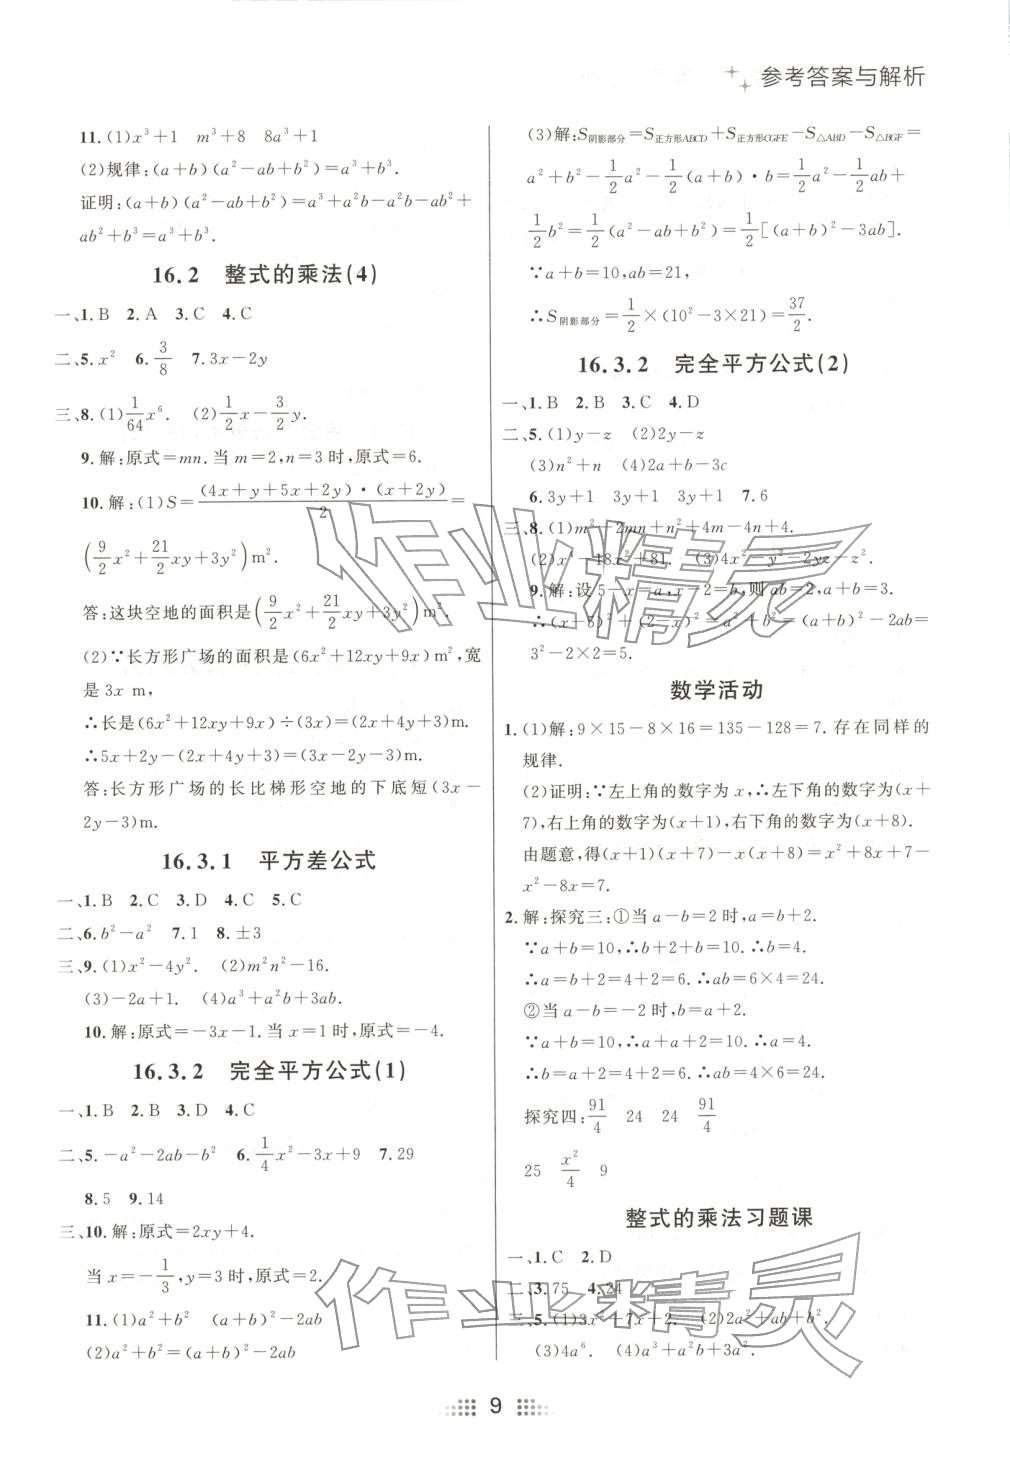 参考答案与解析
11.(1)x³+1　m³+8　8a³+1
(2)规律:(a+b)(a²-ab+b²)=a³+b³.
证明:(a+b)(a²-ab+b²)=a³+a²b-a²b-ab²+
ab²+b³=a³+b³.
16.2　整式的乘法(4)
一、1.B　2.A　3.C　4.C
二、5.x²　6.3/8　7.3x-2y
三、8.(1)1/64 x⁶.　(2)1/2 x-3/2 y.
9.解:原式=mn.当m=2,n=3时,原式=6.
10.解:(1)S=(4x+y+5x+2y)·(x+2y)/2=
(9/2 x²+21/2 xy+3y²)m².
答:这块空地的面积是(9/2 x²+21/2 xy+3y²)m².
(2)∵长方形广场的面积是(6x²+12xy+9x)m²,宽
是3x m,
∴长是(6x²+12xy+9x)÷(3x)=(2x+4y+3)m.
∴5x+2y-(2x+4y+3)=(3x-2y-3)m.
答:长方形广场的长比梯形空地的下底短(3x-
2y-3)m.
16.3.1　平方差公式
一、1.B　2.C　3.D　4.C　5.C
二、6.b²-a²　7.1　8.±3
三、9.(1)x²-4y².　(2)m²n²-16.
(3)-2a+1.　(4)a³+a²b+3ab.
10.解:原式=-3x-1.当x=1时,原式=-4.
16.3.2　完全平方公式(1)
一、1.B　2.B　3.D　4.C
二、5.-a²-2ab-b²　6.1/4 x²-3x+9　7.29
8.5　9.14
三、10.解:原式=2xy+4.
当x=-1/3,y=3时,原式=2.
11.(1)a²+b²　(a+b)²-2ab
(2)a²+b²=(a+b)²-2ab
(3)解:S阴影部分=S正方形ABCD+S正方形CGFE-S△ABD-S△BGF=
a²+b²-1/2 a²-1/2(a+b)·b=1/2 a²-1/2 ab+
1/2 b²=1/2(a²-ab+b²)=1/2[(a+b)²-3ab].
∵a+b=10,ab=21,
∴S阴影部分=1/2×(10²-3×21)=37/2.
16.3.2　完全平方公式(2)
一、1.B　2.B　3.C　4.D
二、5.(1)y-z　(2)2y-z
(3)n²+n　(4)2a+b-3c
6.3y+1　3y+1　3y+1　7.6
三、8.(1)m²+2mn+n²+4m-4n+4.
(2)x⁴-18x²+81.　(3)4x²-y²-2yz-z².
9.解:设5-x=a,x-2=b,则ab=2,a+b=3.
∴(x+5)²+(2-x)²=a²+b²=(a+b)²-2ab=
3²-2×2=5.
数学活动
1.(1)解:9×15-8×16=135-128=7.存在同样的
规律.
(2)证明:∵左上角的数字为x,∴左下角的数字为(x+
7),右上角的数字为(x+1),右下角的数字为(x+8).
由题意,得(x+1)(x+7)-x(x+8)=x²+8x+7-
x²-8x=7.
2.解:探究三:①当a-b=2时,a=b+2.
∵a+b=10,∴b+2+b=10.∴b=4.
∴a=b+2=4+2=6.∴ab=6×4=24.
②当a-b=-2时,b=a+2.
∵a+b=10,∴a+a+2=10.∴a=4.
∴b=a+2=4+2=6.∴ab=4×6=24.
探究四:91/4　24　24　91/4
25　x²/4　9
整式的乘法习题课
一、1.C　2.D
二、3.75　4.24
三、5.(1)3x²+7x+2.　(2)2a²+ab+b².
(3)4a⁶.　(4)a³+a²b+3a².
9
作业精灵
作业精灵